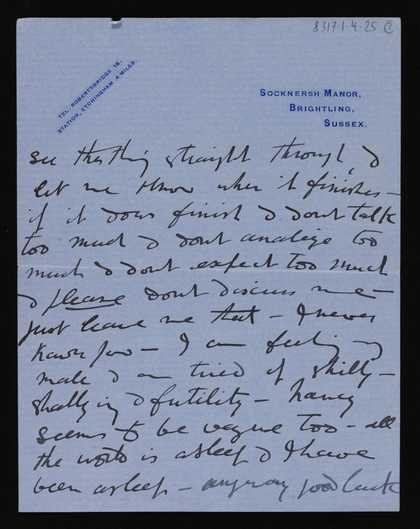 8317.1.4.25 C
TEL. ROBERTSBRIDGE 18.
STATION, ETCHINGHAM 4 MILES.
SOCKNERSH MANOR,
BRIGHTLING,
SUSSEX.
see this thing straight through, &
let me know when it finishes –
if it does finish & dont talk
too much & dont analize too
much & dont expect too much
& please dont discuss me –
just leave me that – I never
knew you – I am feeling
made & am tired of shilly –
shallying & futility –
seems to be vague too – all
the world is asleep & I have
been asleep – anyway good luck